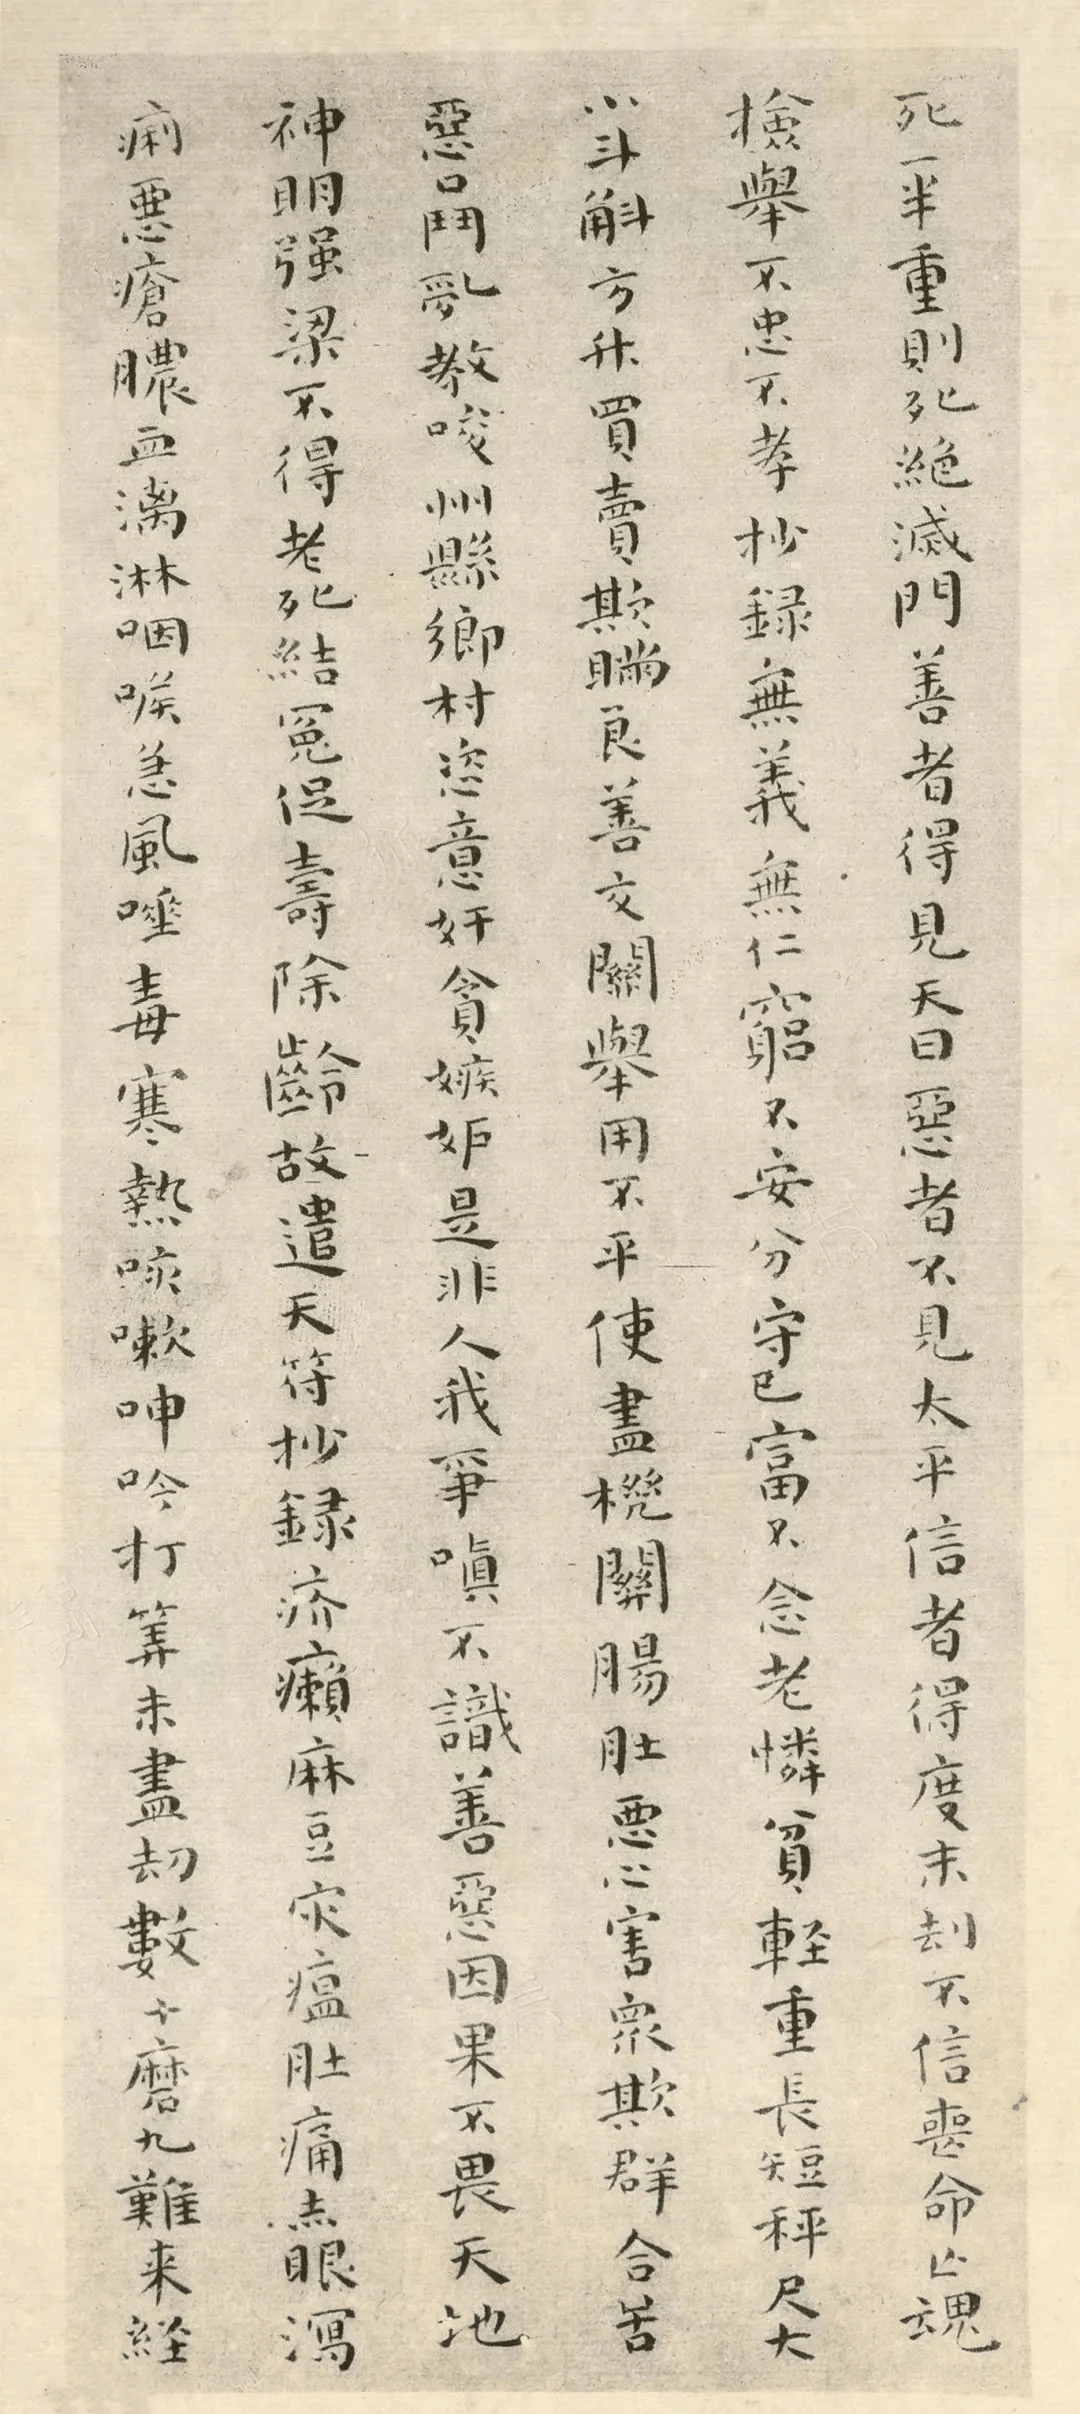 死一半重則死絕滅門善者得見天日惡者不見太平信者得度末刧不信喪命亡魂
撿舉不忠不孝抄録無義無仁窮不安分守己富不念老憐貧輕重長短秤尺大
小斗斛方升買賣欺瞞良善交關舉用不平使盡機關腸肚惡心害衆欺群合苦
惡口鬪亂教唆州縣鄉村恣意奸貪嫉妒是非人我爭嗔不識善惡因果不畏天地
神明强梁不得老死結冤促壽除齡故遣天符抄録疥癩麻豆灾瘟肚痛赤眼瀉
痢惡瘡膿血漓淋咽喉急風唑毒寒熱咳嗽呻吟打筭未盡刼數十磨九難来経